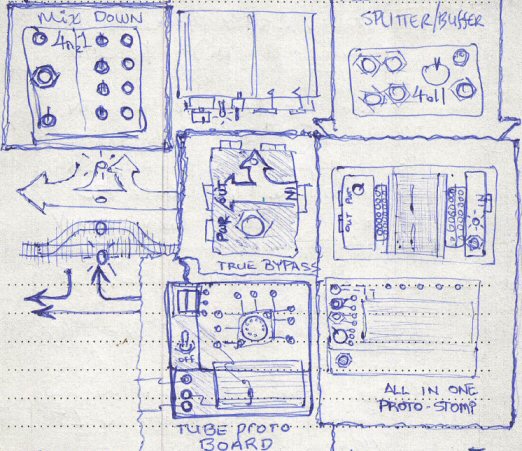 MIX DOWN
4in1
SPLITTER/BUFFER
4 all
PWR
OUT
IN
TRUE BYPASS
OUT
IN
off
TUBE PROTO
BOARD
ALL IN ONE
PROTO-STOMP